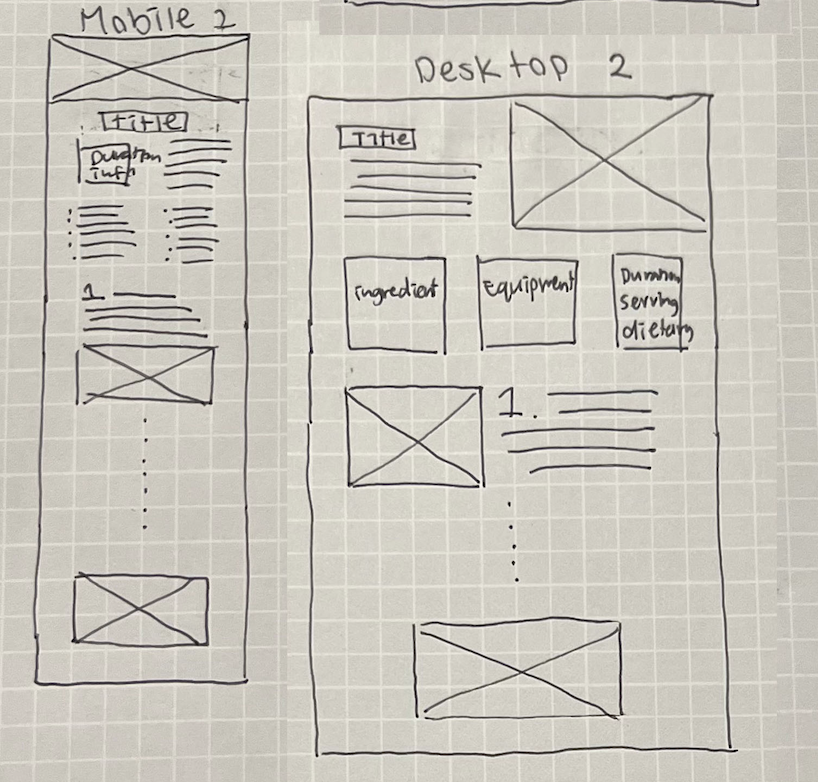 Mobile 2
Title
Duration
info
1
Desktop 2
Title
ingredient
Equipment
Duration
serving
dietary
1.